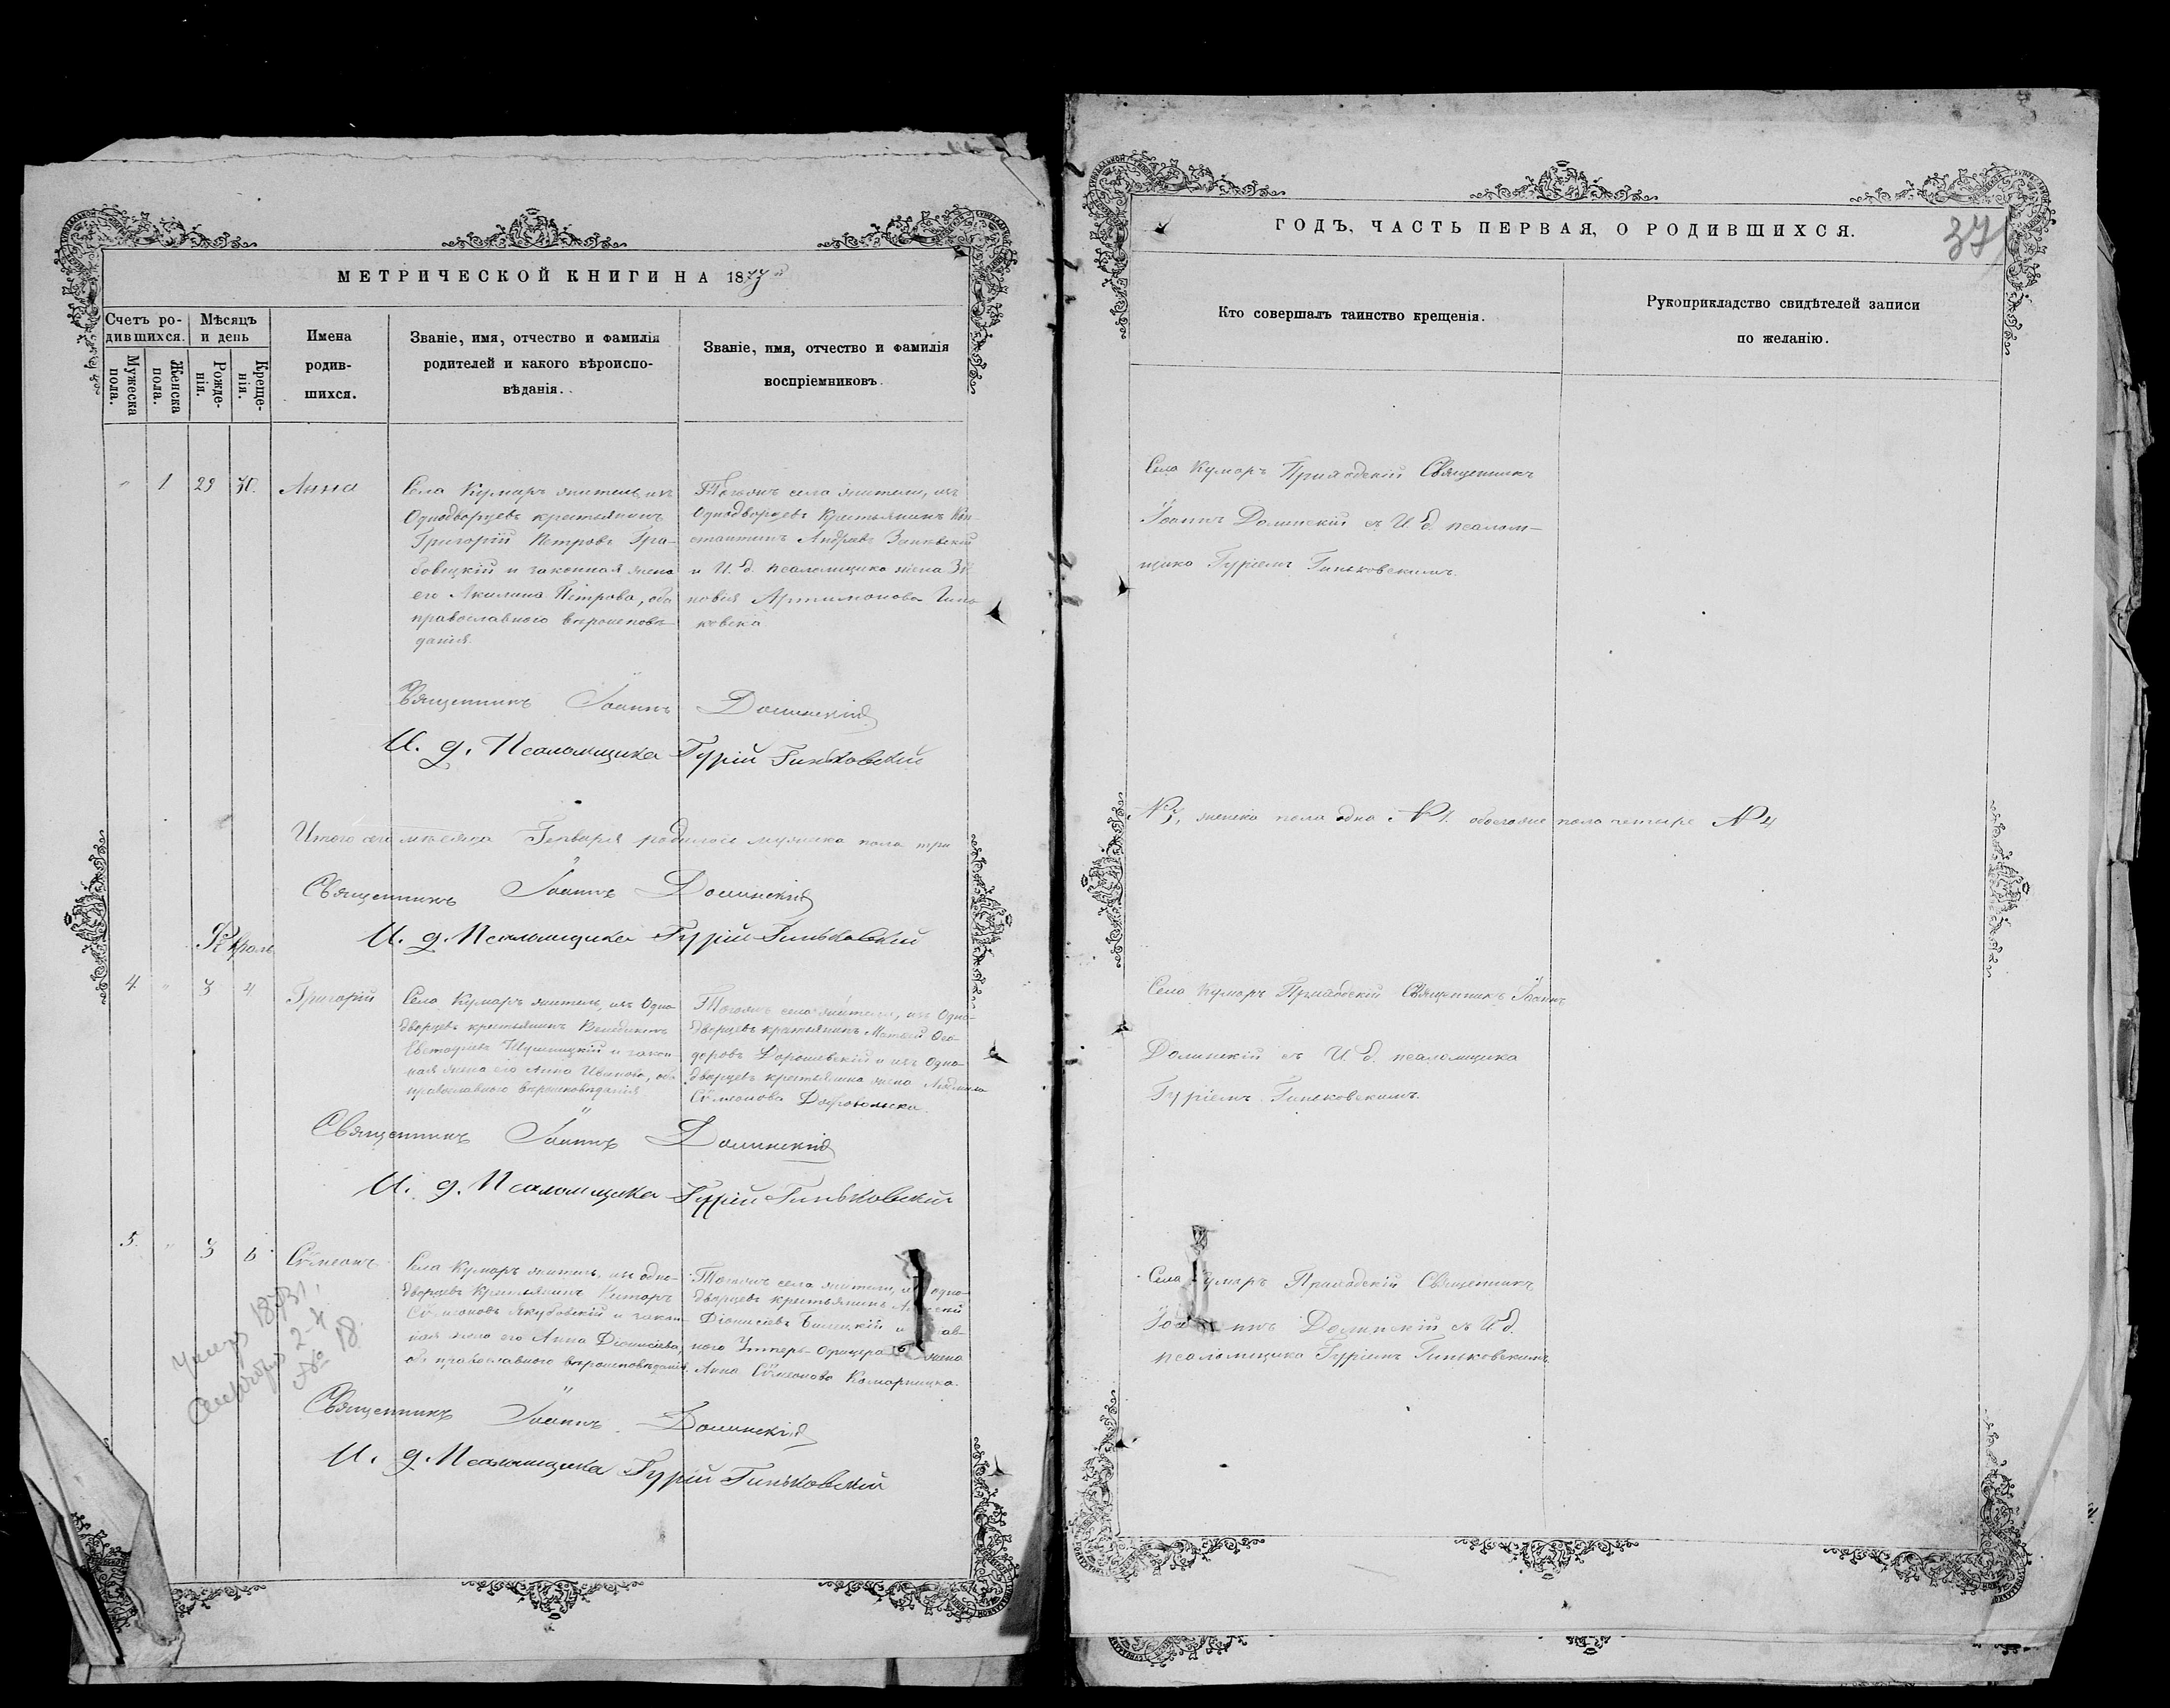 МЕТРИЧЕСКОЙ КНИГИ НА 1877й
Счетъ ро-
дившихся.
Мѣсяцъ
и день
Мужеска
пола.
Женска
пола.
Рожде-
нія.
Креще-
нія.
Имена
родив-
шихся.
Званіе, имя, отчество и фамилія
родителей и какого вѣроиспо-
вѣданія.
Званіе, имя, отчество и фамилія
воспріемниковъ.
" 1 29 30. Анна
Села Кумаръ житель, изъ
Однодворцевъ крестьянинъ
Григорій Петровъ Гра-
бовецкій и законная жена
его Акилина Петрова, оба
православнаго вѣроисповѣ-
данія.
Тогожъ села жители, изъ
Однодворцевъ Крестьянинъ Кон-
стантинъ Андреевъ
и И. д. псаломщика жена Зѣ-
новія Артимонова Гинь-
ковска
Священникъ Іоаннъ Долинскій
И. д. Псаломщика Гурій Гиньковскій
Итого сего мѣсяца Генваря родилось мужеска пола три
Священникъ Іоаннъ Долинскій
И. д. Псаломщика Гурій Гиньковскій
Февраль
4. " 3 4 Григорій
Села Кумаръ житель, изъ Одно-
дворцевъ крестьянинъ Венедиктъ
и закон-
ная жена его Анна Иванова, оба
православнаго вѣроисповѣданія
Тогожъ села жители, изъ Одно-
дворцевъ крестьянинъ Матѳей Ѳео-
доровъ и изъ Одно-
дворцевъ крестьянина жена Людмила
Сѵмеонова Добровольска.
Священникъ Іоаннъ Долинскій
И. д. Псаломщика Гурій Гиньковскій
5. " 3 6 Сѵмеонъ
Села Кумаръ житель, изъ одно-
дворцевъ Крестьянинъ
Сѵмеоновъ Якубовскій и закон-
ная жена его Анна Діонисіева,
оба православнаго вѣроисповѣданія.
Тогожъ села жители, изъ одно-
дворцевъ крестьянинъ
Діонисіевъ и
наго Унтеръ-Офицера жена
Анна Сѵмеонова Комарницка.
Священникъ Іоаннъ Долинскій
И. д. Псаломщика Гурій Гиньковскій
2-4
№ 18
ГОДЪ, ЧАСТЬ ПЕРВАЯ, О РОДИВШИХСЯ.
37
Кто совершалъ таинство крещенія.
Рукоприкладство свидѣтелей записи
по желанію.
Села Кумаръ Приходскій Священникъ
Іоаннъ Долинскій съ И. д. псалом-
щика Гуріемъ Гиньковскимъ.
№ 3, женска пола одна № 1. обоегоже пола четыре № 4
Села Кумаръ Приходскій Священникъ Іоаннъ
Долинскій съ И. д. псаломщика
Гуріемъ Гиньковскимъ.
Села Кумаръ Приходскій Священникъ
Іоаннъ Долинскій съ И. д.
псаломщика Гуріемъ Гиньковскимъ.